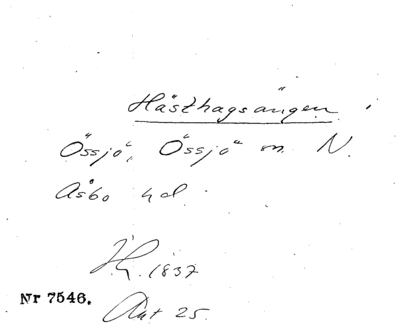 Hästhagsängen
Össjö, Össjö sn. N.
Åsbo hd.
1837
Nr 7546.
Akt 25.